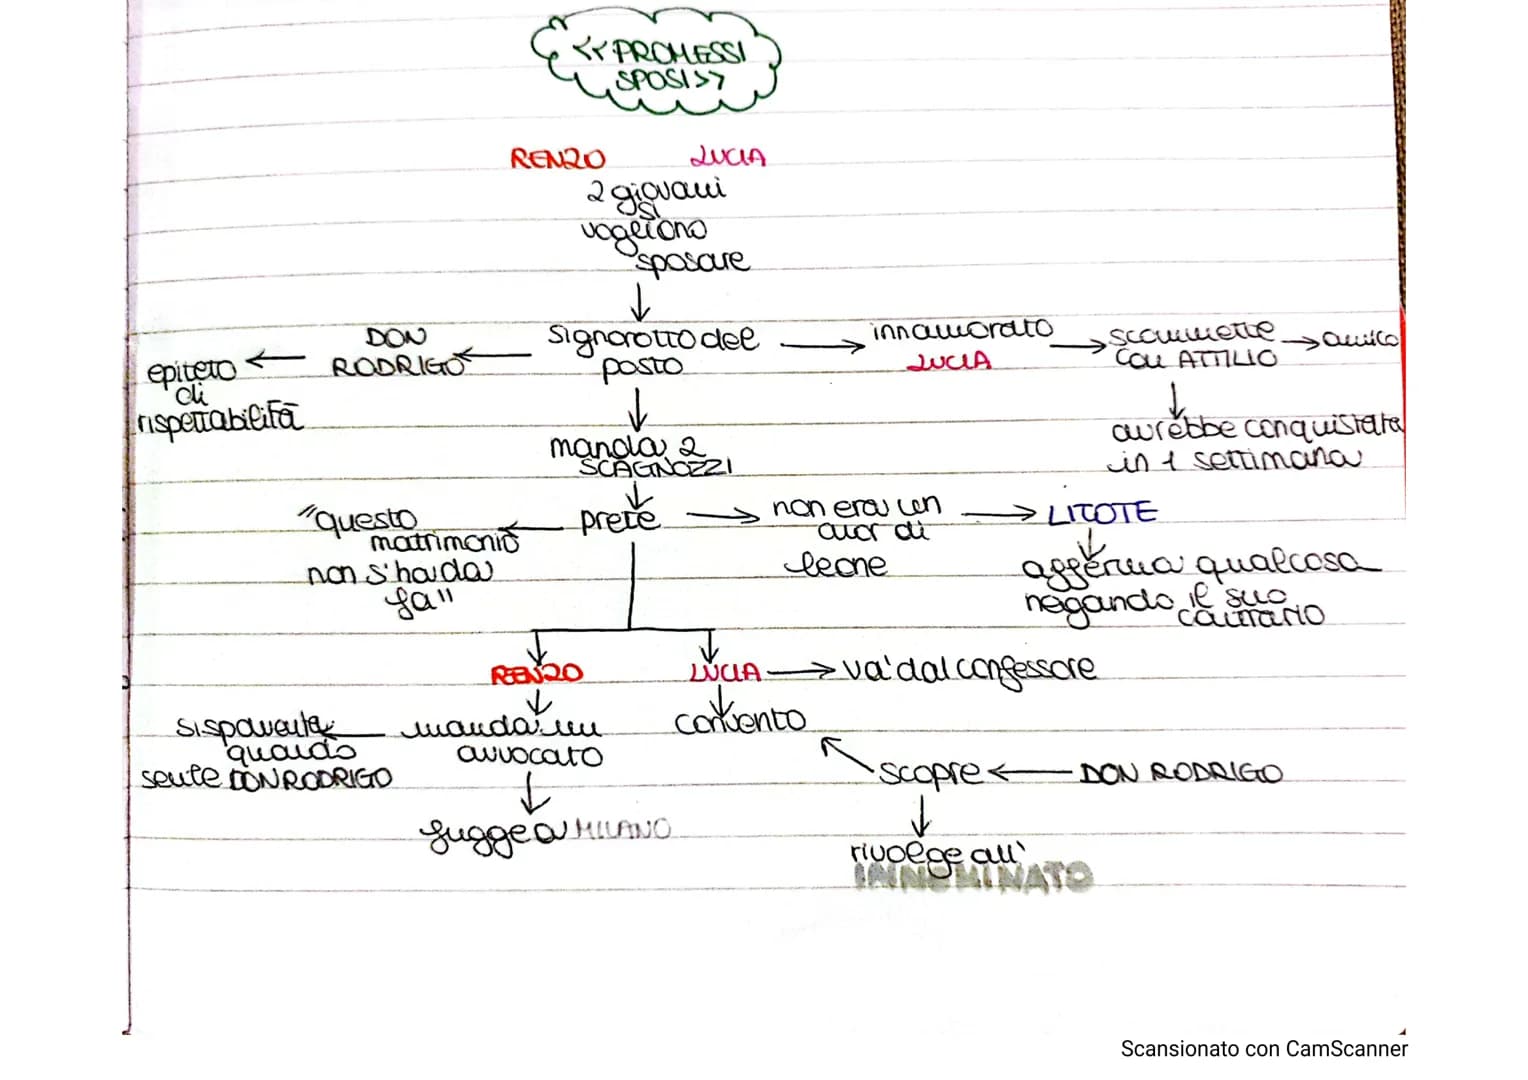 <<PROMESSI
SPOSI>>
RENZO LUCIA
2 giovani
si
vogliono
sposare
DON
RODRIGO
epiteto
di
rispettabilità
Signorotto del
posto
innamorato
LUCIA
scommette
con ATTILIO
amico
avrebbe conquistata
in 1 settimana
manda 2
SCAGNOZZI
prete
"questo
matrimonio
non s'ha da
fa"
non era un
cuor di
leone
LITOTE
afferma qualcosa
negando il suo
contrario
RENZO
LUCIA
va' dal confessore
manda un
avvocato
si spaventa
quando
sente DON RODRIGO
convento
scopre
DON RODRIGO
fugge a MILANO
rivolge all'
INNOMINATO
Scansionato con CamScanner